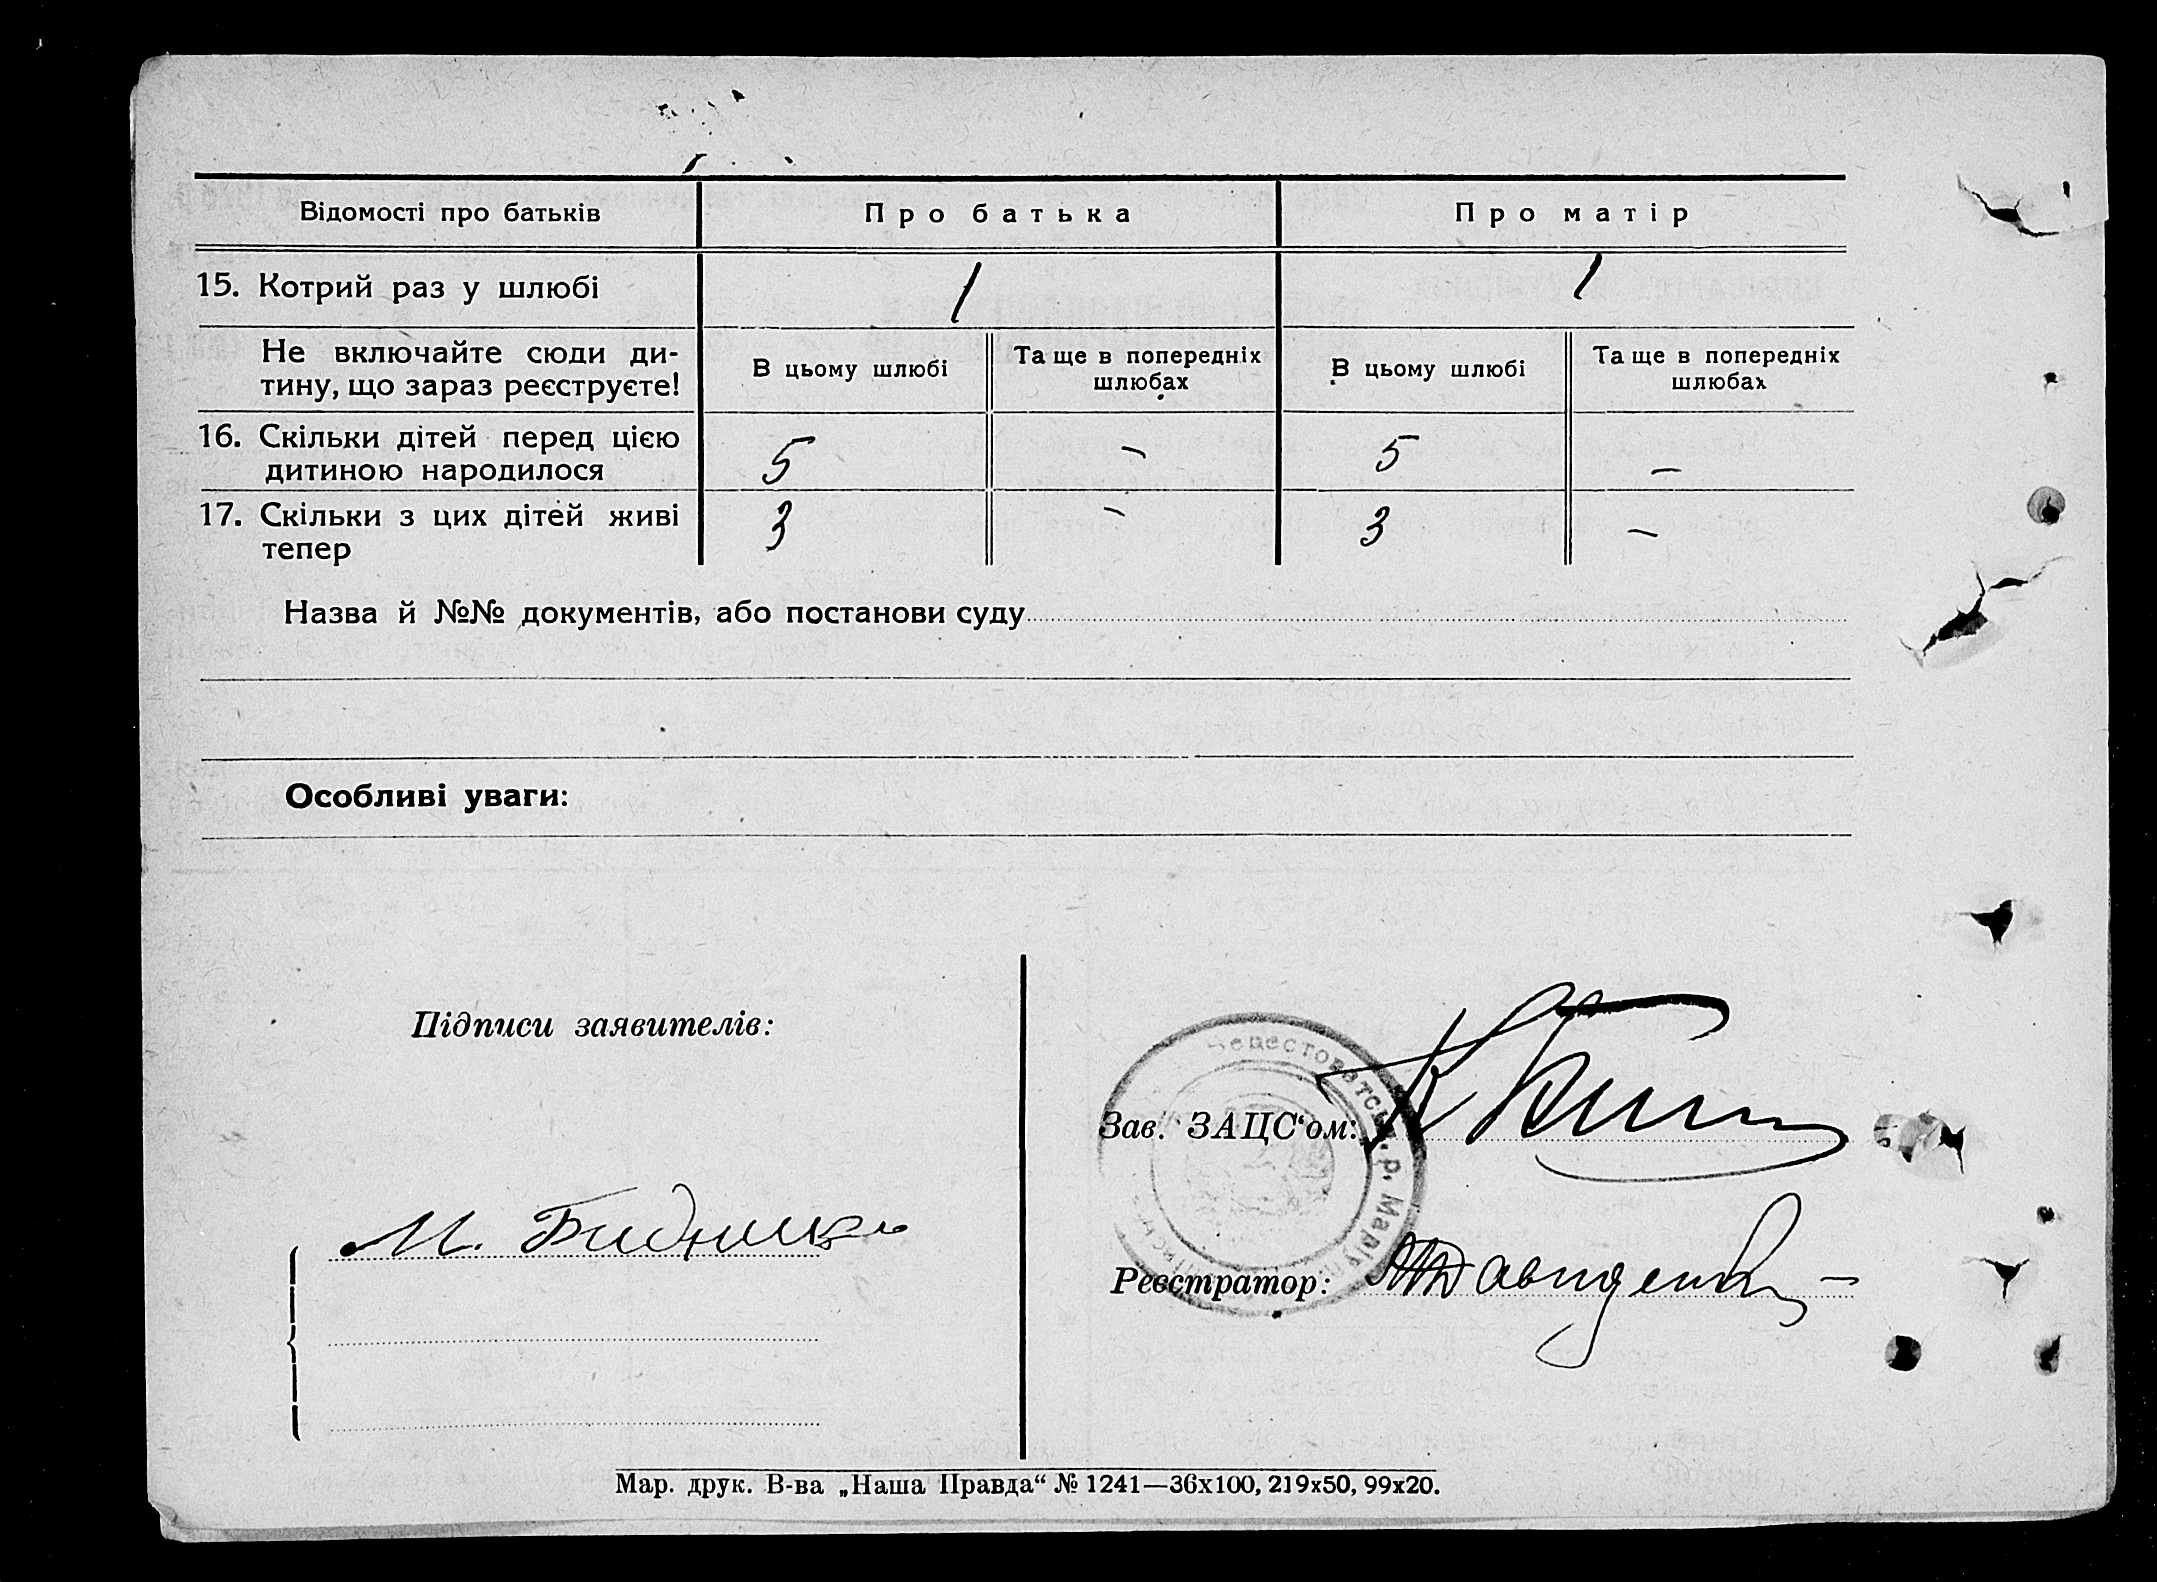 Відомості про батьків Про батька Про матір
15. Котрий раз у шлюбі 1 1
Не включайте сюди ди-
тину, що зараз реєструєте!
В цьому шлюбі
Та ще в попередніх
шлюбах
В цьому шлюбі
Та ще в попередніх
шлюбах
16. Скільки дітей перед цією
дитиною народилося
5 – 5 –
17. Скільки з цих дітей живі
тепер
3 – 3 –
Назва й №№ документів, або постанови суду
Особливі уваги:
Підписи заявителів:
М.
Зав. ЗАЦС‘ом:
Реєстратор:
Мар. друк. В-ва „Наша Правда“ № 1241—36х100, 219х50, 99х20.